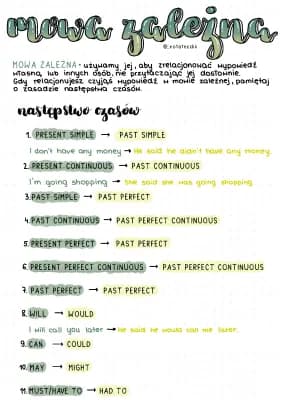 mowa zależna
@_notatecdii
MOWA ZALEŻNA - używamy jej, aby zrelacjonować wypowiedź
własną lub innych osób, nie przytaczając jej dosłownie.
Gdy relacjonujesz czyjąś wypowiedź w mowie zależnej, pamiętaj
o zasadzie następstwa czasów.
następstwo czasów
1. PRESENT SIMPLE → PAST SIMPLE
I don't have any money → He said he didn't have any money.
2. PRESENT CONTINUOUS → PAST CONTINUOUS
I'm going shopping → She said she was going shopping
3. PAST SIMPLE → PAST PERFECT
4. PAST CONTINUOUS → PAST PERFECT CONTINUOUS
5. PRESENT PERFECT → PAST PERFECT
6. PRESENT PERFECT CONTINUOUS → PAST PERFECT CONTINUOUS
7. PAST PERFECT → PAST PERFECT
8. WILL → WOULD
I will call you later → He said he would call me later.
9. CAN → COULD
10. MAY → MIGHT
11. MUST/HAVE TO → HAD TO